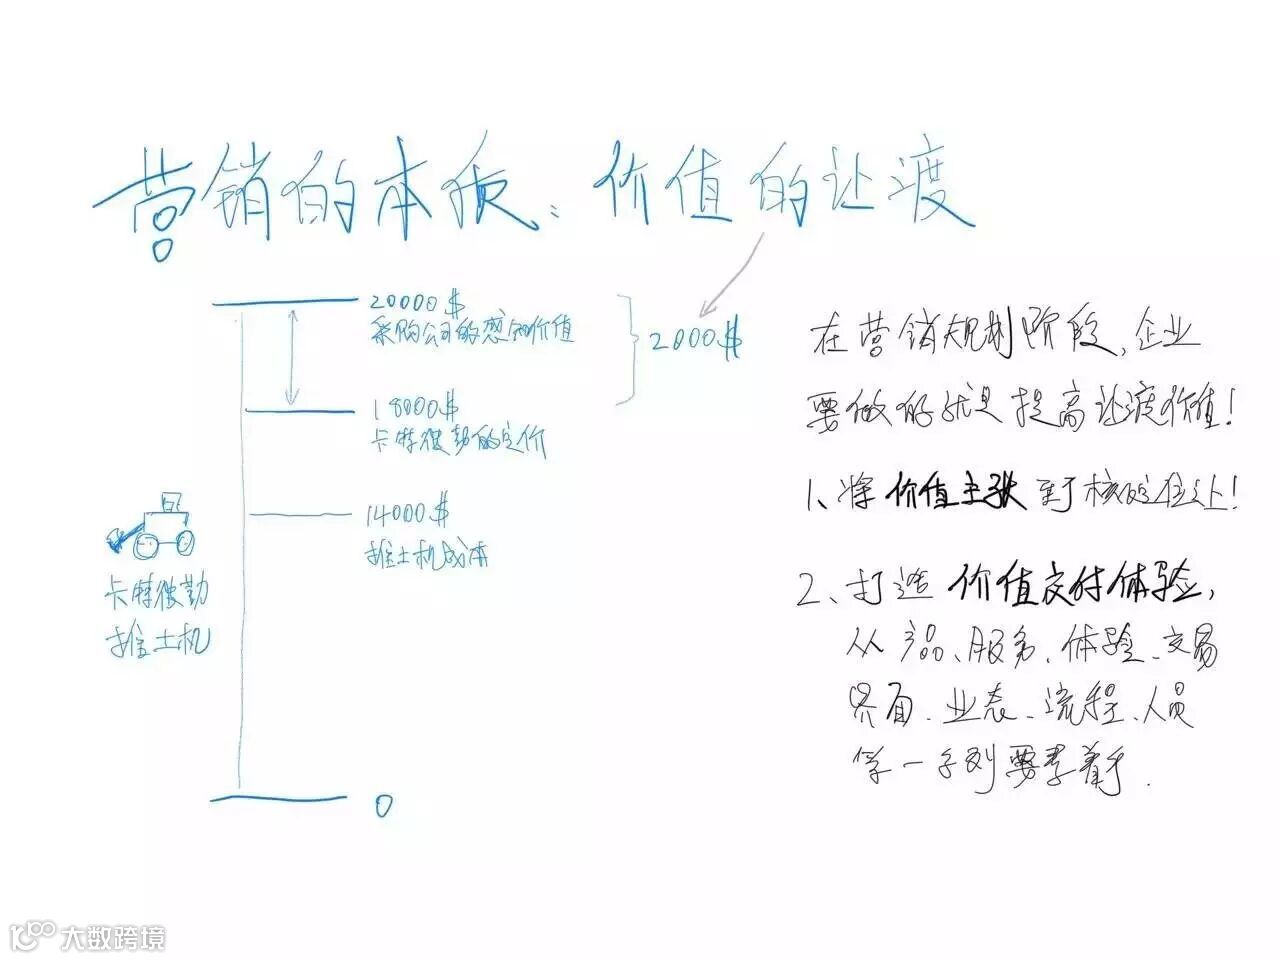 营销的本质：价值的让渡
20000$
采购公司的感知价值
2000$
18000$
卡特彼勒的定价
14000$
推土机成本
卡特彼勒
推土机
0
在营销规划阶段，企业
要做的就是提高让渡价值！
1、将价值主张到核心位上！
2、打造价值交付体验，
从产品、服务、体验、交易
界面、业态、流程、人员
等一系列要素着手.
大数跨境